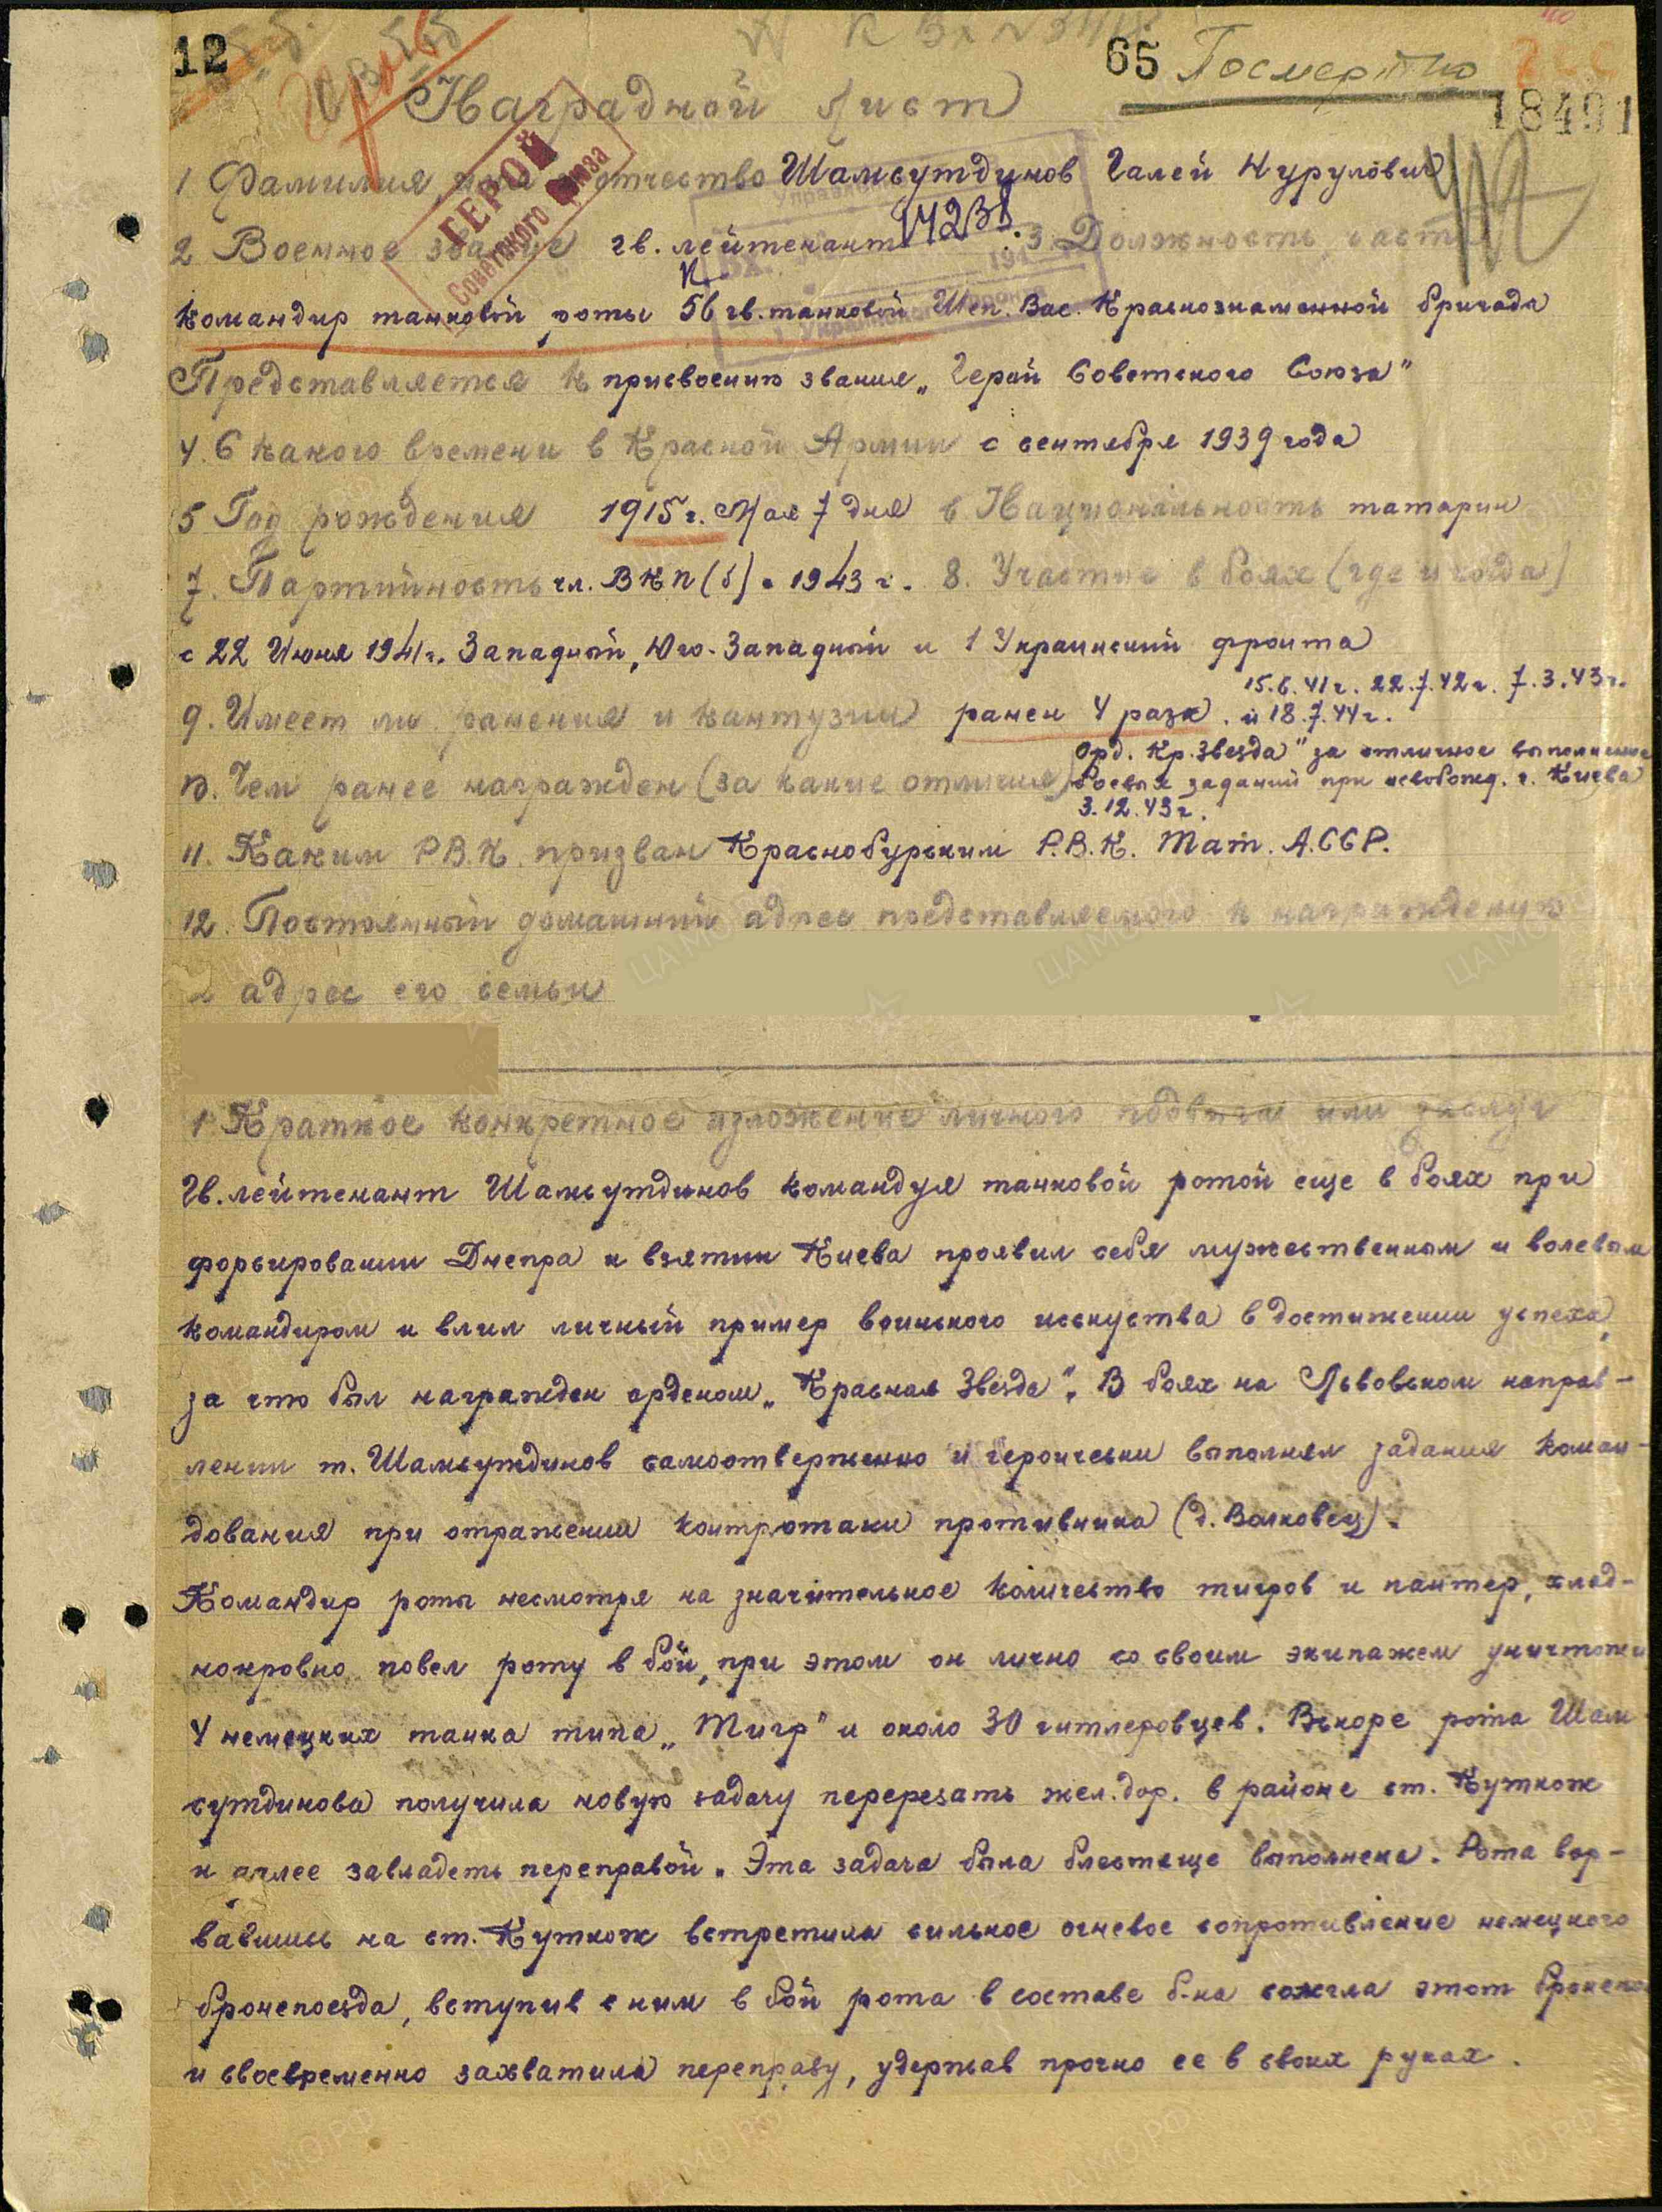 12
65 Посмертно
18491
Наградной лист
ГЕРОЙ
Советского Союза
1 Фамилия имя отчество Шамсутдинов Галей Нурулович
14231
2 Военное звание гв. лейтенант 3. Должность часть
командир танковой роты 56 гв. танковой Шеп. Вас. Краснознаменной бригада
Представляется к присвоению звания „Герой Советского Союза"
4. С какого времени в Красной Армии с сентября 1939 года
5 Год рождения 1915 г. Мая 7 дня 6 Национальность татарин
7. Партийность чл. ВКП(б) с 1943 г. 8. Участие в боях (где и когда)
с 22 Июня 1941 г. Западный, Юго-Западный и 1 Украинский фронта
9. Имеет ли ранения и контузии ранен 4 раза. 15.6.41 г. 22.7.42 г. 7.3.43 г. и 18.7.44 г.
10. Чем ранее награжден (за какие отличия) Орд. Кр. Звезда" за отличное выполнение
боевых заданий при освобожд. г. Киева
3.12.43 г.
11. Каким Р.В.К. призван Краснобурским Р.В.К. Тат. А.ССР.
12. Постоянный домашний адрес представляемого к награждению
адрес его семьи
1 Краткое конкретное изложение личного подвига или заслуг
Гв. лейтенант Шамсутдинов командуя танковой ротой еще в боях при
форсировании Днепра и взятии Киева проявил себя мужественным и волевым
командиром и влил личный пример воинского искуства в достижении успеха,
за что был награжден орденом „Красная Звезда". В боях на Львовском направ-
лении т. Шамсутдинов самоотверженно и героически выполнял задания коман-
дования при отражении контратаки противника (д. Волковец).
Командир роты несмотря на значительное количество тигров и пантер, хлад-
нокровно повел роту в бой, при этом он лично со своим экипажем уничтожил
4 немецких танка типа „Тигр" и около 30 гитлеровцев. Вскоре рота Шам
сутдинова получила новую задачу перерезать жел. дор. в районе ст. Куткож
и далее завладеть переправой. Эта задача была блестяще выполнена. Рота вор-
вавшись на ст. Куткож встретила сильное огневое сопротивление немецкого
бронепоезда, вступив с ним в бой рота в составе б-на сожгла этот бронепоезд
и своевременно захватила переправу, удержав прочно ее в своих руках.